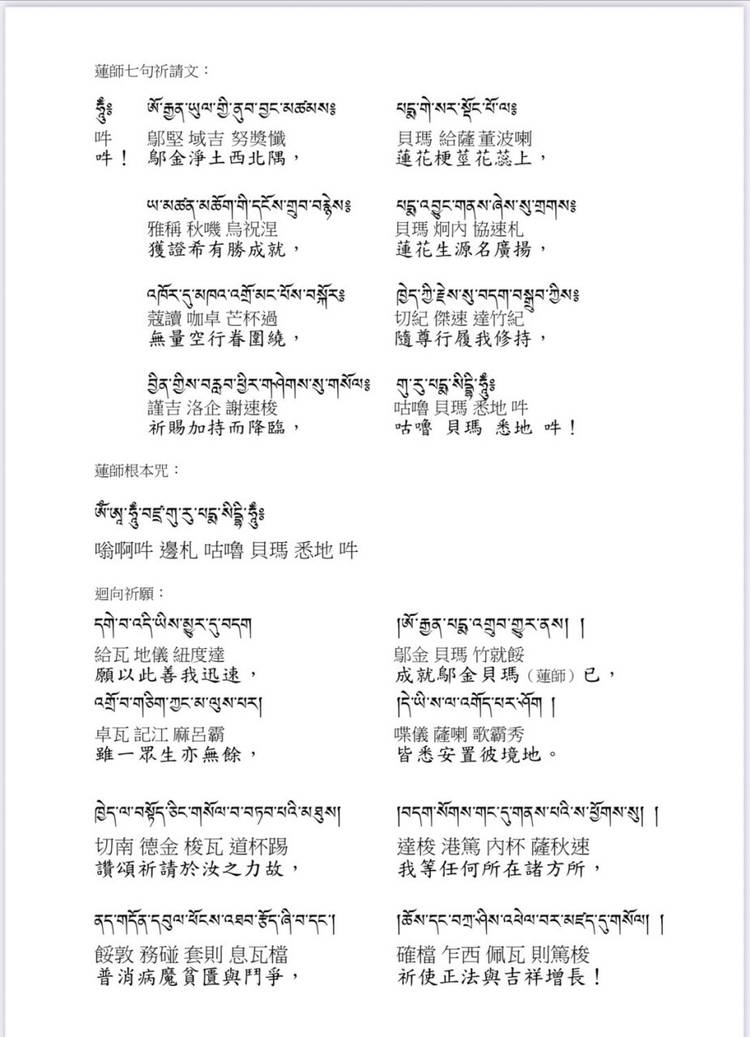 蓮師七句祈請文：
ཧཱུྃ༔ ཨོ་རྒྱན་ཡུལ་གྱི་ནུབ་བྱང་མཚམས༔ པདྨ་གེ་སར་སྡོང་པོ་ལ༔
吽 鄔堅 域吉 努獎懺 貝瑪 給薩 董波喇
吽！ 鄔金淨土西北隅， 蓮花梗莖花蕊上，
ཡ་མཚན་མཆོག་གི་དངོས་གྲུབ་བརྙེས༔ པདྨ་འབྱུང་གནས་ཞེས་སུ་གྲགས༔
雅稱 秋嘰 烏祝涅 貝瑪 炯內 協速札
獲證希有勝成就， 蓮花生源名廣揚，
འཁོར་དུ་མཁའ་འགྲོ་མང་པོས་བསྐོར༔ ཁྱེད་ཀྱི་རྗེས་སུ་བདག་བསྒྲུབ་ཀྱིས༔
蔻讀 咖卓 芒杯過 切紀 傑速 達竹紀
無量空行眷圍繞， 隨尊行履我修持，
བྱིན་གྱིས་བརླབ་ཕྱིར་གཤེགས་སུ་གསོལ༔ གུ་རུ་པདྨ་སིདྡྷི་ཧཱུྃ༔
謹吉 洛企 謝速梭 咕嚕 貝瑪 悉地 吽
祈賜加持而降臨， 咕嚕 貝瑪 悉地 吽！
蓮師根本咒：
ཨོཾ་ཨཱཿ་ཧཱུྃ་བཛྲ་གུ་རུ་པདྨ་སིདྡྷི་ཧཱུྃ༔
嗡啊吽 邊札 咕嚕 貝瑪 悉地 吽
迴向祈願：
དགེ་བ་འདི་ཡིས་མྱུར་དུ་བདག །ཨོ་རྒྱན་པདྨ་འགྲུབ་གྱུར་ནས། །
給瓦 地儀 紐度達 鄔金 貝瑪 竹就餒
願以此善我迅速， 成就鄔金貝瑪（蓮師）已，
འགྲོ་བ་གཅིག་ཀྱང་མ་ལུས་པར། །དེ་ཡི་ས་ལ་འགོད་པར་ཤོག །
卓瓦 記江 麻呂霸 喋儀 薩喇 歌霸秀
雖一眾生亦無餘， 皆悉安置彼境地。
ཁྱེད་ལ་བསྟོད་ཅིང་གསོལ་བ་བཏབ་པའི་མཐུས། །བདག་སོགས་གང་དུ་གནས་པའི་ས་ཕྱོགས་སུ། །
切南 德金 梭瓦 道杯踢 達梭 港篤 內杯 薩秋速
讚頌祈請於汝之力故， 我等任何所在諸方所，
ནད་གདོན་དབུལ་ཕོངས་འཐབ་རྩོད་ཞི་བ་དང་། །ཆོས་དང་བཀྲ་ཤིས་འཕེལ་བར་མཛད་དུ་གསོལ། །
餒敦 務碰 套則 息瓦檔 確檔 乍西 佩瓦 則篤梭
普消病魔貧匱與鬥爭， 祈使正法與吉祥增長！